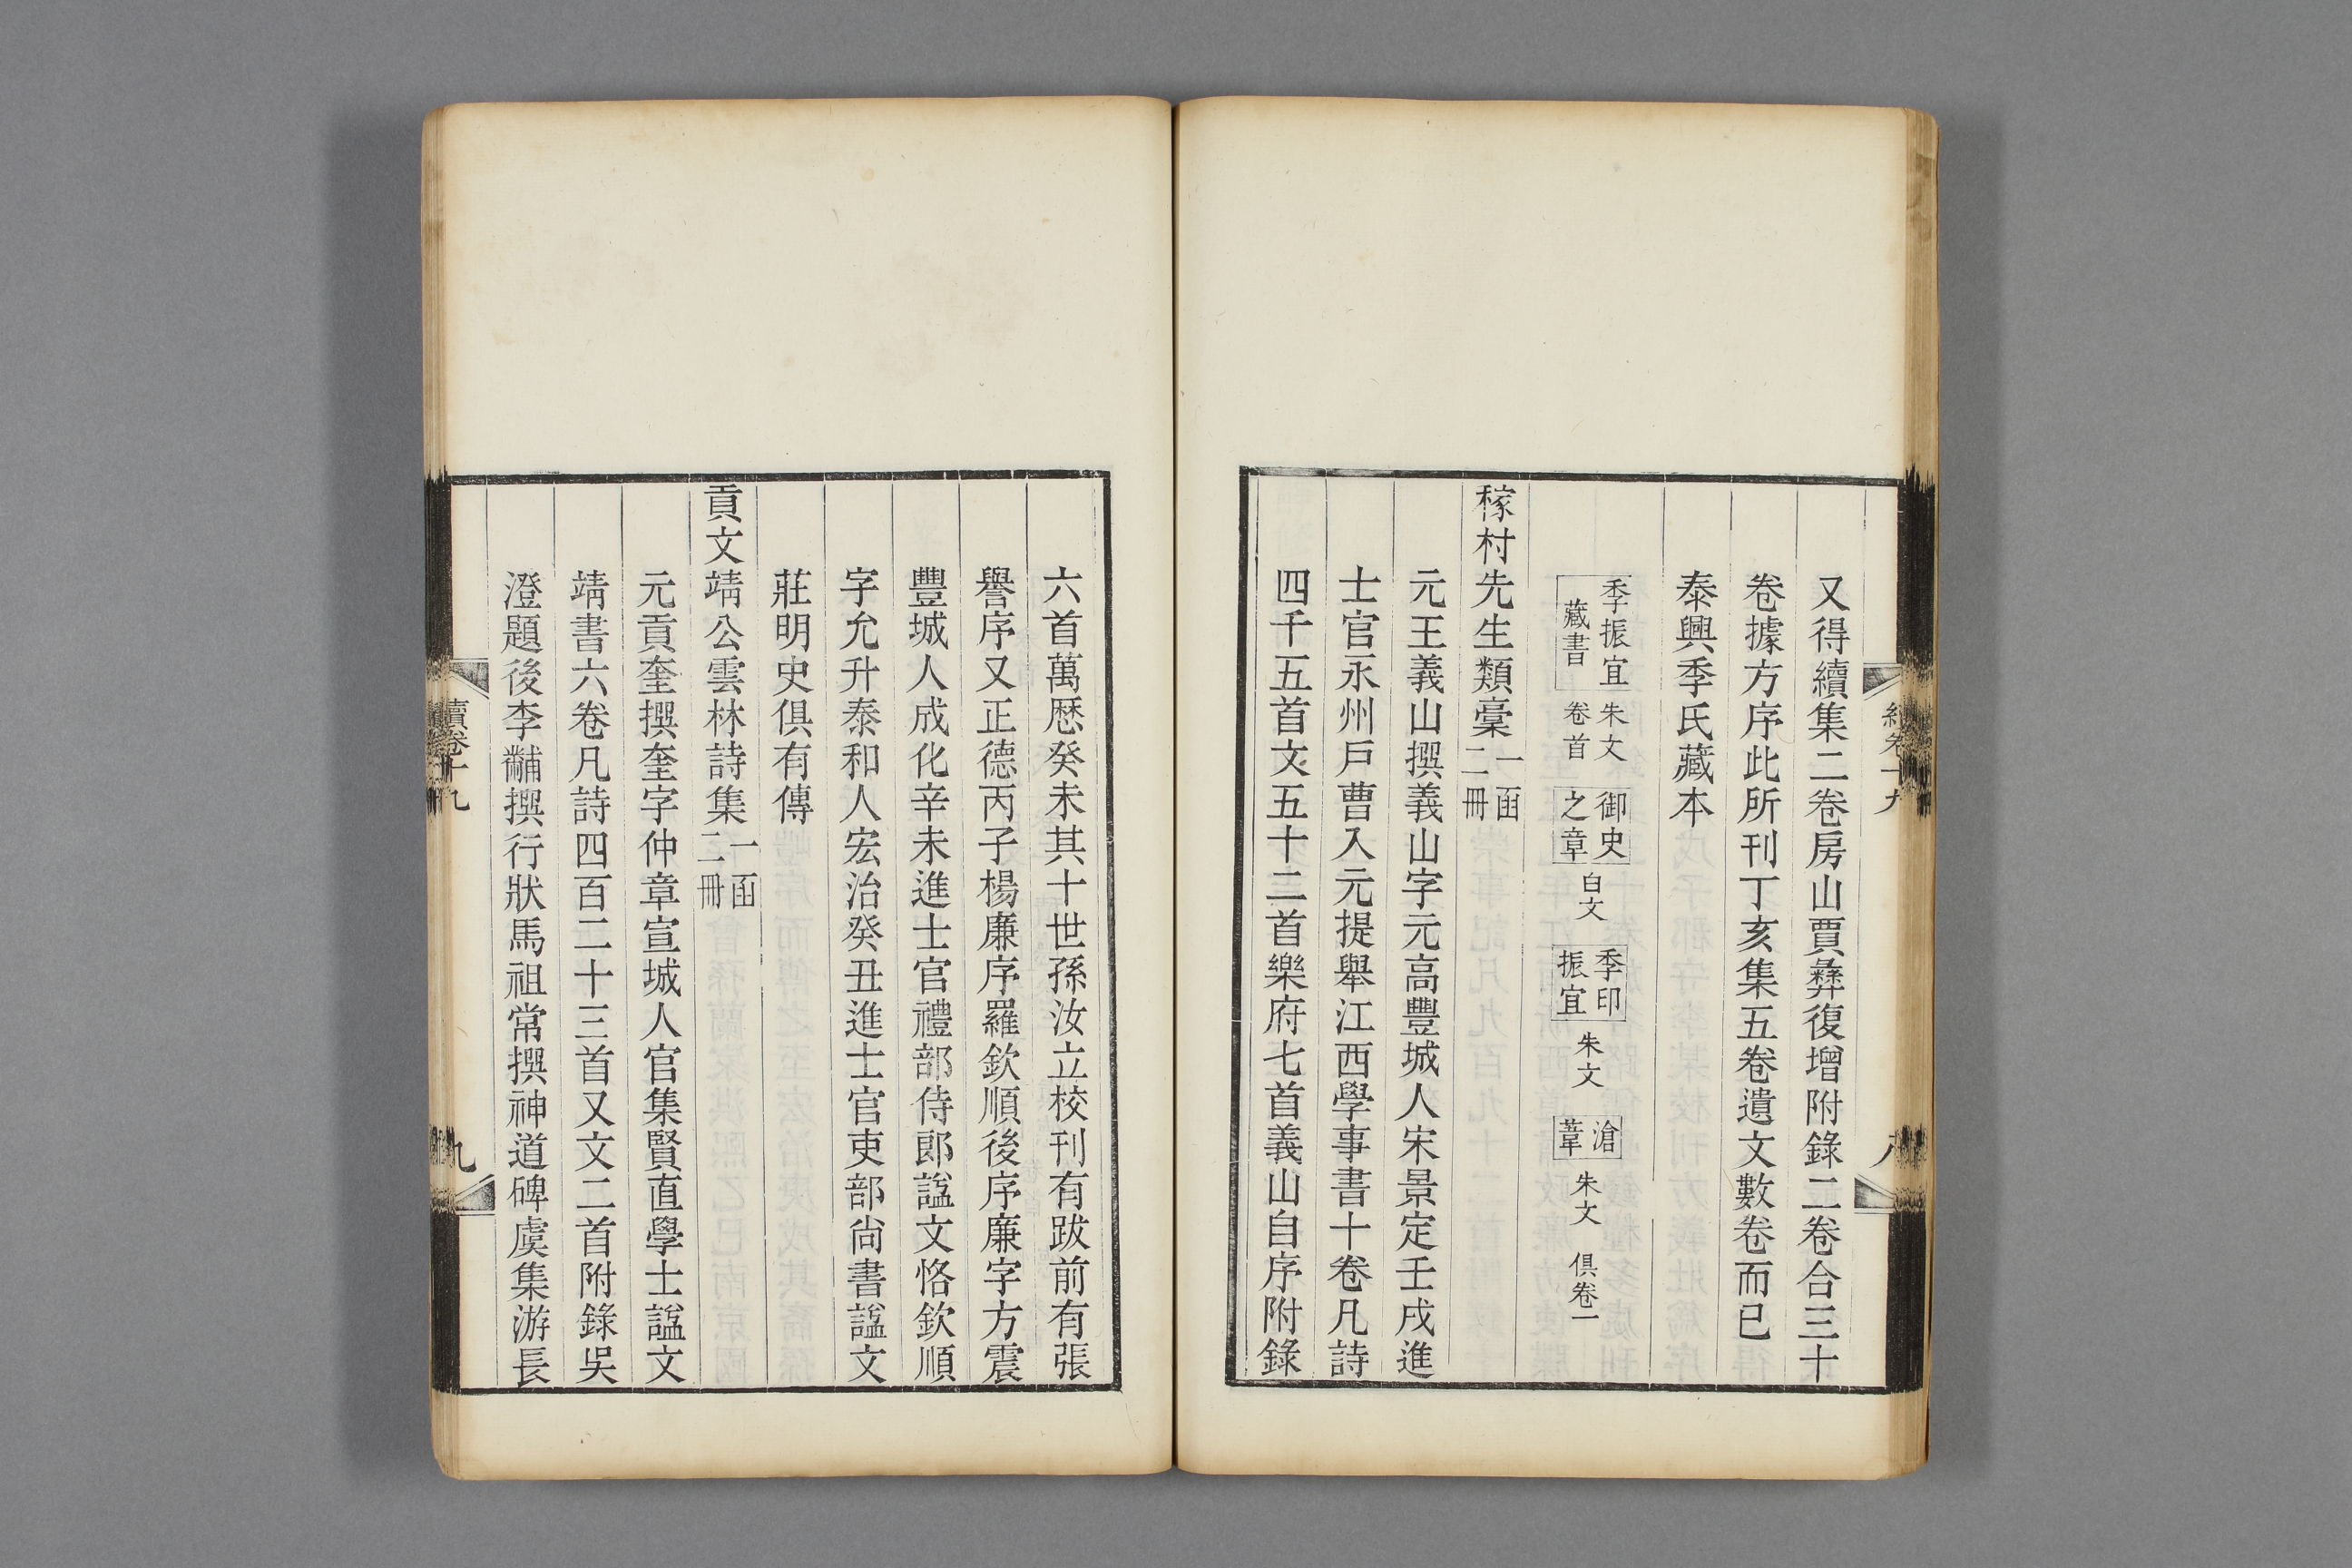 又得續集二卷房山賈彝復增附錄二卷合三十
卷據方序此所刊丁亥集五卷遺文數卷而已
泰興季氏藏本
季振宜藏書 朱文卷首 御史之章 白文 季印振宜 朱文 滄葦 朱文 俱卷一
稼村先生類稾 一函二冊
元王義山撰義山字元高豐城人宋景定壬戌進
士官永州戶曹入元提舉江西學事書十卷凡詩
四千五首文五十二首樂府七首義山自序附錄
六首萬厯癸未其十世孫汝立校刊有跋前有張
譽序又正德丙子楊廉序羅欽順後序廉字方震
豐城人成化辛未進士官禮部侍郎諡文恪欽順
字允升泰和人宏治癸丑進士官吏部尙書諡文
莊明史俱有傳
貢文靖公雲林詩集 一函二冊
元貢奎撰奎字仲章宣城人官集賢直學士諡文
靖書六卷凡詩四百二十三首又文二首附錄吳
澄題後李黼撰行狀馬祖常撰神道碑虞集游長
續卷十九
九